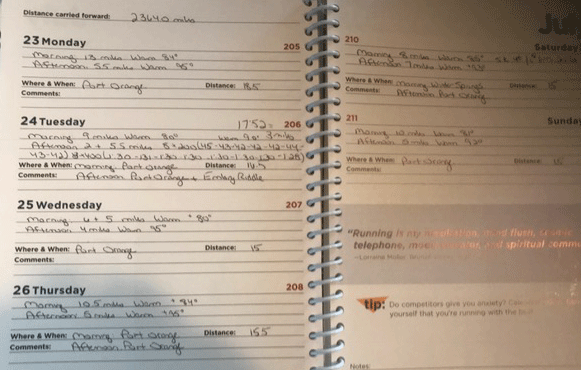 Distance carried forward: 23640 miles
23 Monday 205
Morning 13 miles Warm 84°
Afternoon 5.5 miles Warm 95°
Where & When: Port Orange Distance: 18.5
Comments:
24 Tuesday 17:52 206
Morning 9 miles Warm 80° Warm 90° 3 miles
Afternoon 2 + 5.5 miles 5x200(45-43-42-42-42-44-
43-42) 8x400(1:30
Where & When: Morning Port Orange Distance:
Comments: Afternoon Port Orange + Embry Riddle
25 Wednesday 207
Morning 6 + 5 miles Warm + 80°
Afternoon 4 miles Warm 95°
Where & When: Port Orange Distance: 15
Comments:
26 Thursday 208
Morning 10.5 miles Warm + 84°
Afternoon 5 miles Warm +95°
Where & When: Morning Port Orange Distance: 15.5
Comments: Afternoon Port Orange
Jul
210
Saturday
Morning 8 miles Warm 85°
Afternoon 7 miles Warm
Where & When: Morning Winter Springs Distance: 15
Comments: Afternoon Port Orange
211
Sunday
Morning 10 miles Warm 81°
Afternoon 5 miles Warm 92°
Where & When: Port Orange Distance: 15
Comments:
"Running is my meditation, mind flush, cosmic
telephone, mood elevator, and spiritual comm
—Lorraine Moller,
tip: Do competitors give you anxiety?
yourself that you're running with the
Notes: